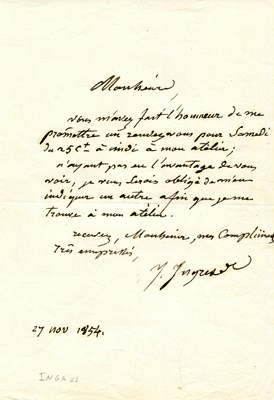 Monsieur,
vous m'avez fait l'honneur de me
promettre un rendez vous pour Samedi
du 25 Ct à midi à mon atelier;
n'ayant pas eu l'avantage de vous
voir, je vous serois obligé de m'en
indiquer un autre afin que je me
trouve à mon atelier.
recevez, Monsieur, mes Complimens
très empressés,
J. Ingres
27 nov 1854.
INGR